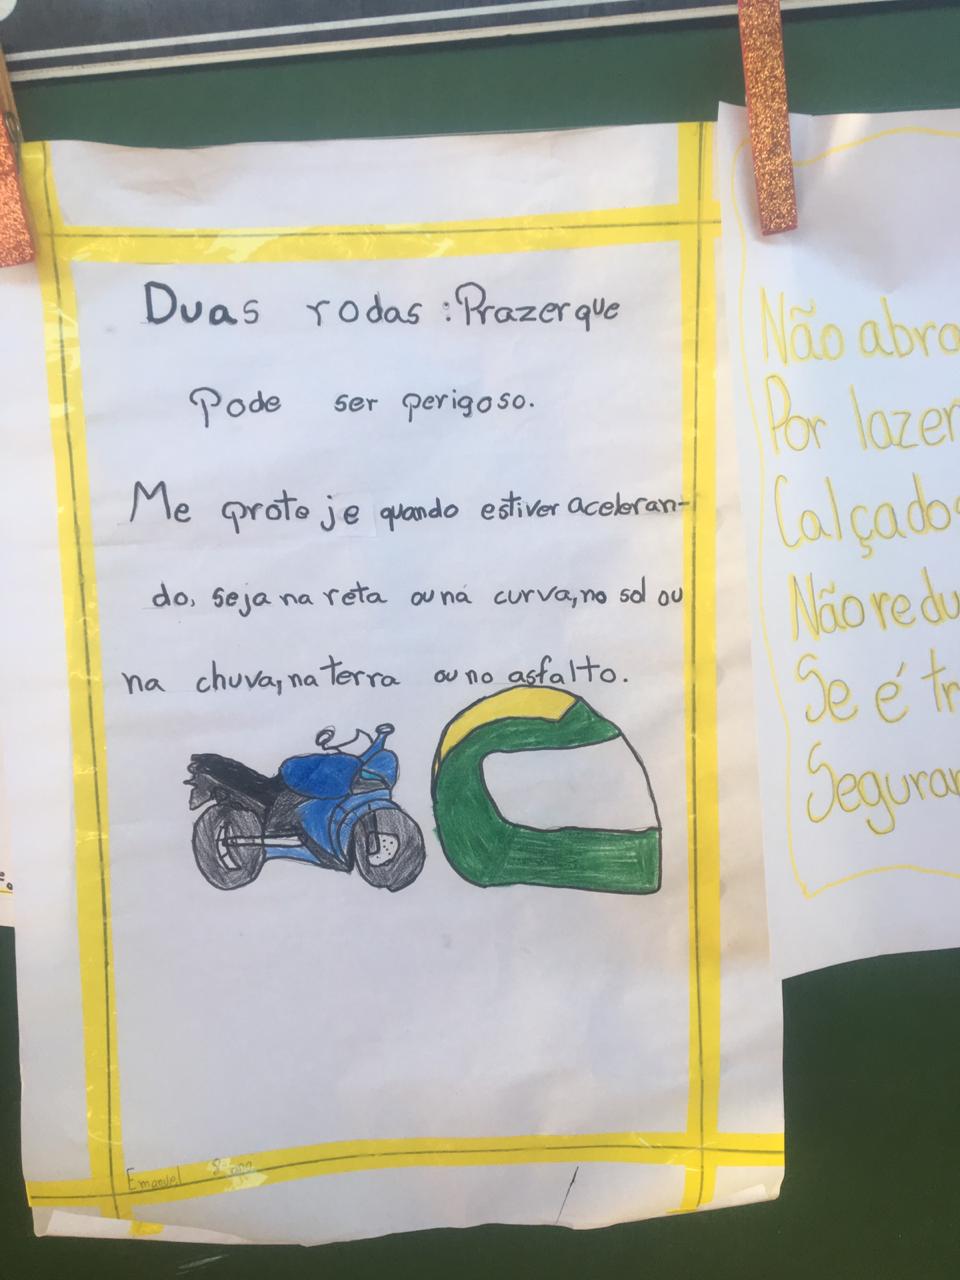 Duas rodas : Prazer que
Pode ser perigoso.
Me proteje quando estiver aceleran-
do, seja na reta ou ná curva, no sol ou
na chuva, na terra ou no asfalto.
Emanuel
Não abro
Por lazer
Calçado
Não redu
Se é tr
Seguran